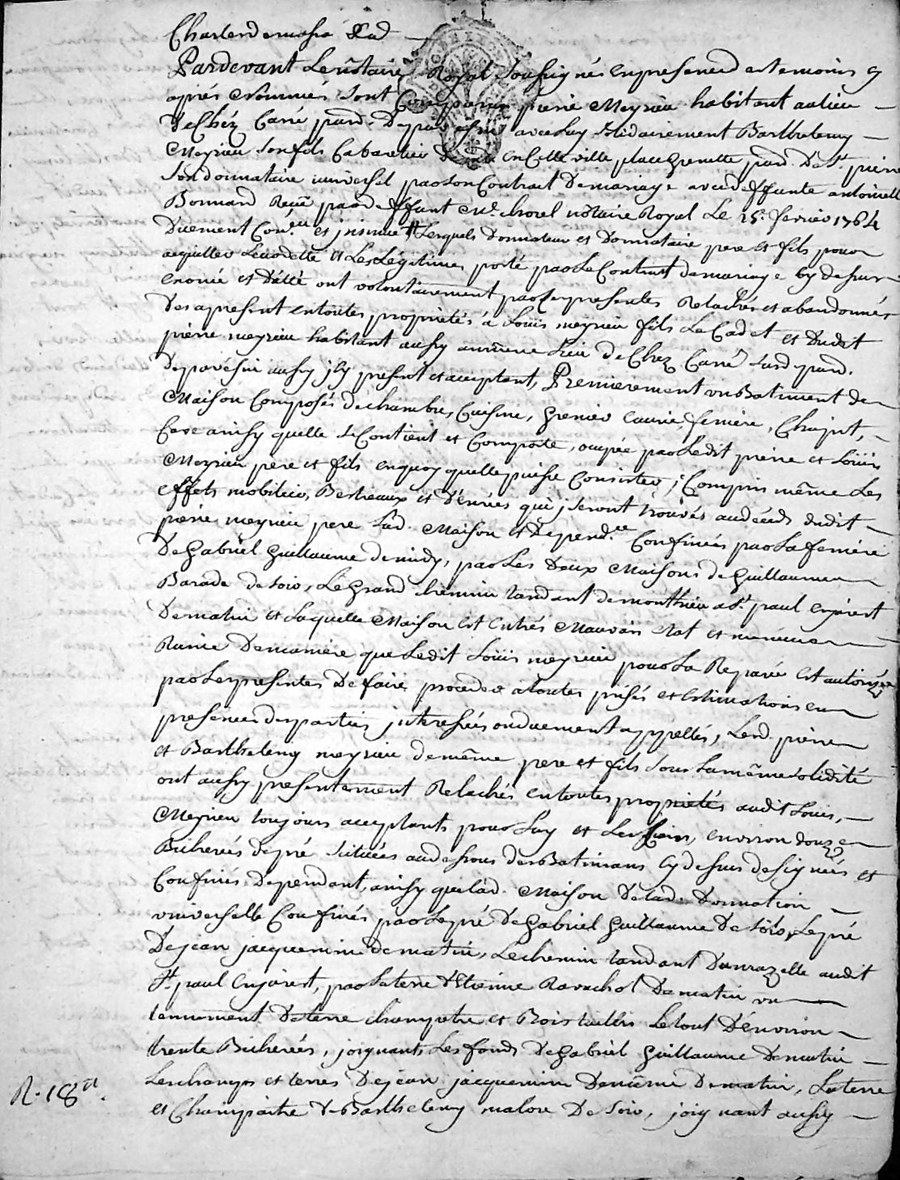 Pardevant Le notaire Royal soussignés en presence des temoins cy
après nommés sont comparus pierre Meyrieu habitant au lieu
de Chéz Carré parr. d'epavesin avec luy solidairement Barthelemy
Meyrieu son fils Cabaretier en cette ville place grenette parr. de St. pierre
son donnataire universel par son Contrat de mariage avec deffunte antoinette
Bonnard Reçu par deffunt Me. chorel notaire Royal Le 15e. fevrier 1764
Duement Con.lé et insinué Lesquels Donnateur et Donnataire pere et fils pour
acquitter La dotte et Les Legitimes porté par Le Contrat de mariage cy dessus
énoncé et Datté ont volontairement par Ces presentes Relachés et abandonnés
Des apresent en toutes propriétés à Loüis meyrieu fils Le Cadet et Dudit
pierre meyrieu habitant aussy au même Lieu de Chéz Carré susd. parr.
Depavésin aussy icy present et acceptant, Premierement un Batiment de
Maison Composés de chambre, Cuisine, grenier Ecurie, feniere, Chapit,
Cave ainsy quelle se Contient et Comporte, occupée par Ledit pierre et Loüis
Meyrieu pere et fils en quoy quelle puisse Consister, y Compris même Les
Effets mobiliers, Bestieaux et Denrées qui seront trouvés au décéds dudit
pierre meyrieu pere Lad. Maison et Depend.ce Confinées par La feniere
De gabriel guillaume de midy, par Les Deux Maisons de guillaume
Barade de soir, Le grand chemin tandant de monthieu a St. paul en jarest
De matin et Laquelle Maison est en trés Mauvais Etat et menace
Ruine De maniere que Ledit Loüis meyrieu pour La Reparér Est autorisé
par Les presentes De faire proceder a toutes prisés et Estimations en
presence des parties interessées ou duement appellés, Lesd. pierre
et Barthelemy meyrieu de même pere et fils sous La même solidité
ont aussy presentement Relachés en toutes propriétés audit Loüis,
Meyrieu toujours acceptants pour Luy et Les siens, environ douze
Bicherées de pré scituées au dessous des Batimans cy dessus designés et
Confinés Dependant ainsy que Lad. Maison De Lad. Donnation
universelle Confinés par Le pré De gabriel guillaume De soir, Le pré
De jean jacquemin de matin, Le chemin tandant audit
St. paul en jarest, par La terre d'Etienne Ravachol De matin un
tennement De terre champetre et Bois taillis Le tout D'environ
trente Bicherées, joignants Les fonds De gabriel guillaume De matin
Les champs et terres De jean jacquemin De même De matin, La terre
et Champêtre de Barthelemy malou De soir, joignant aussy
R. 18s.